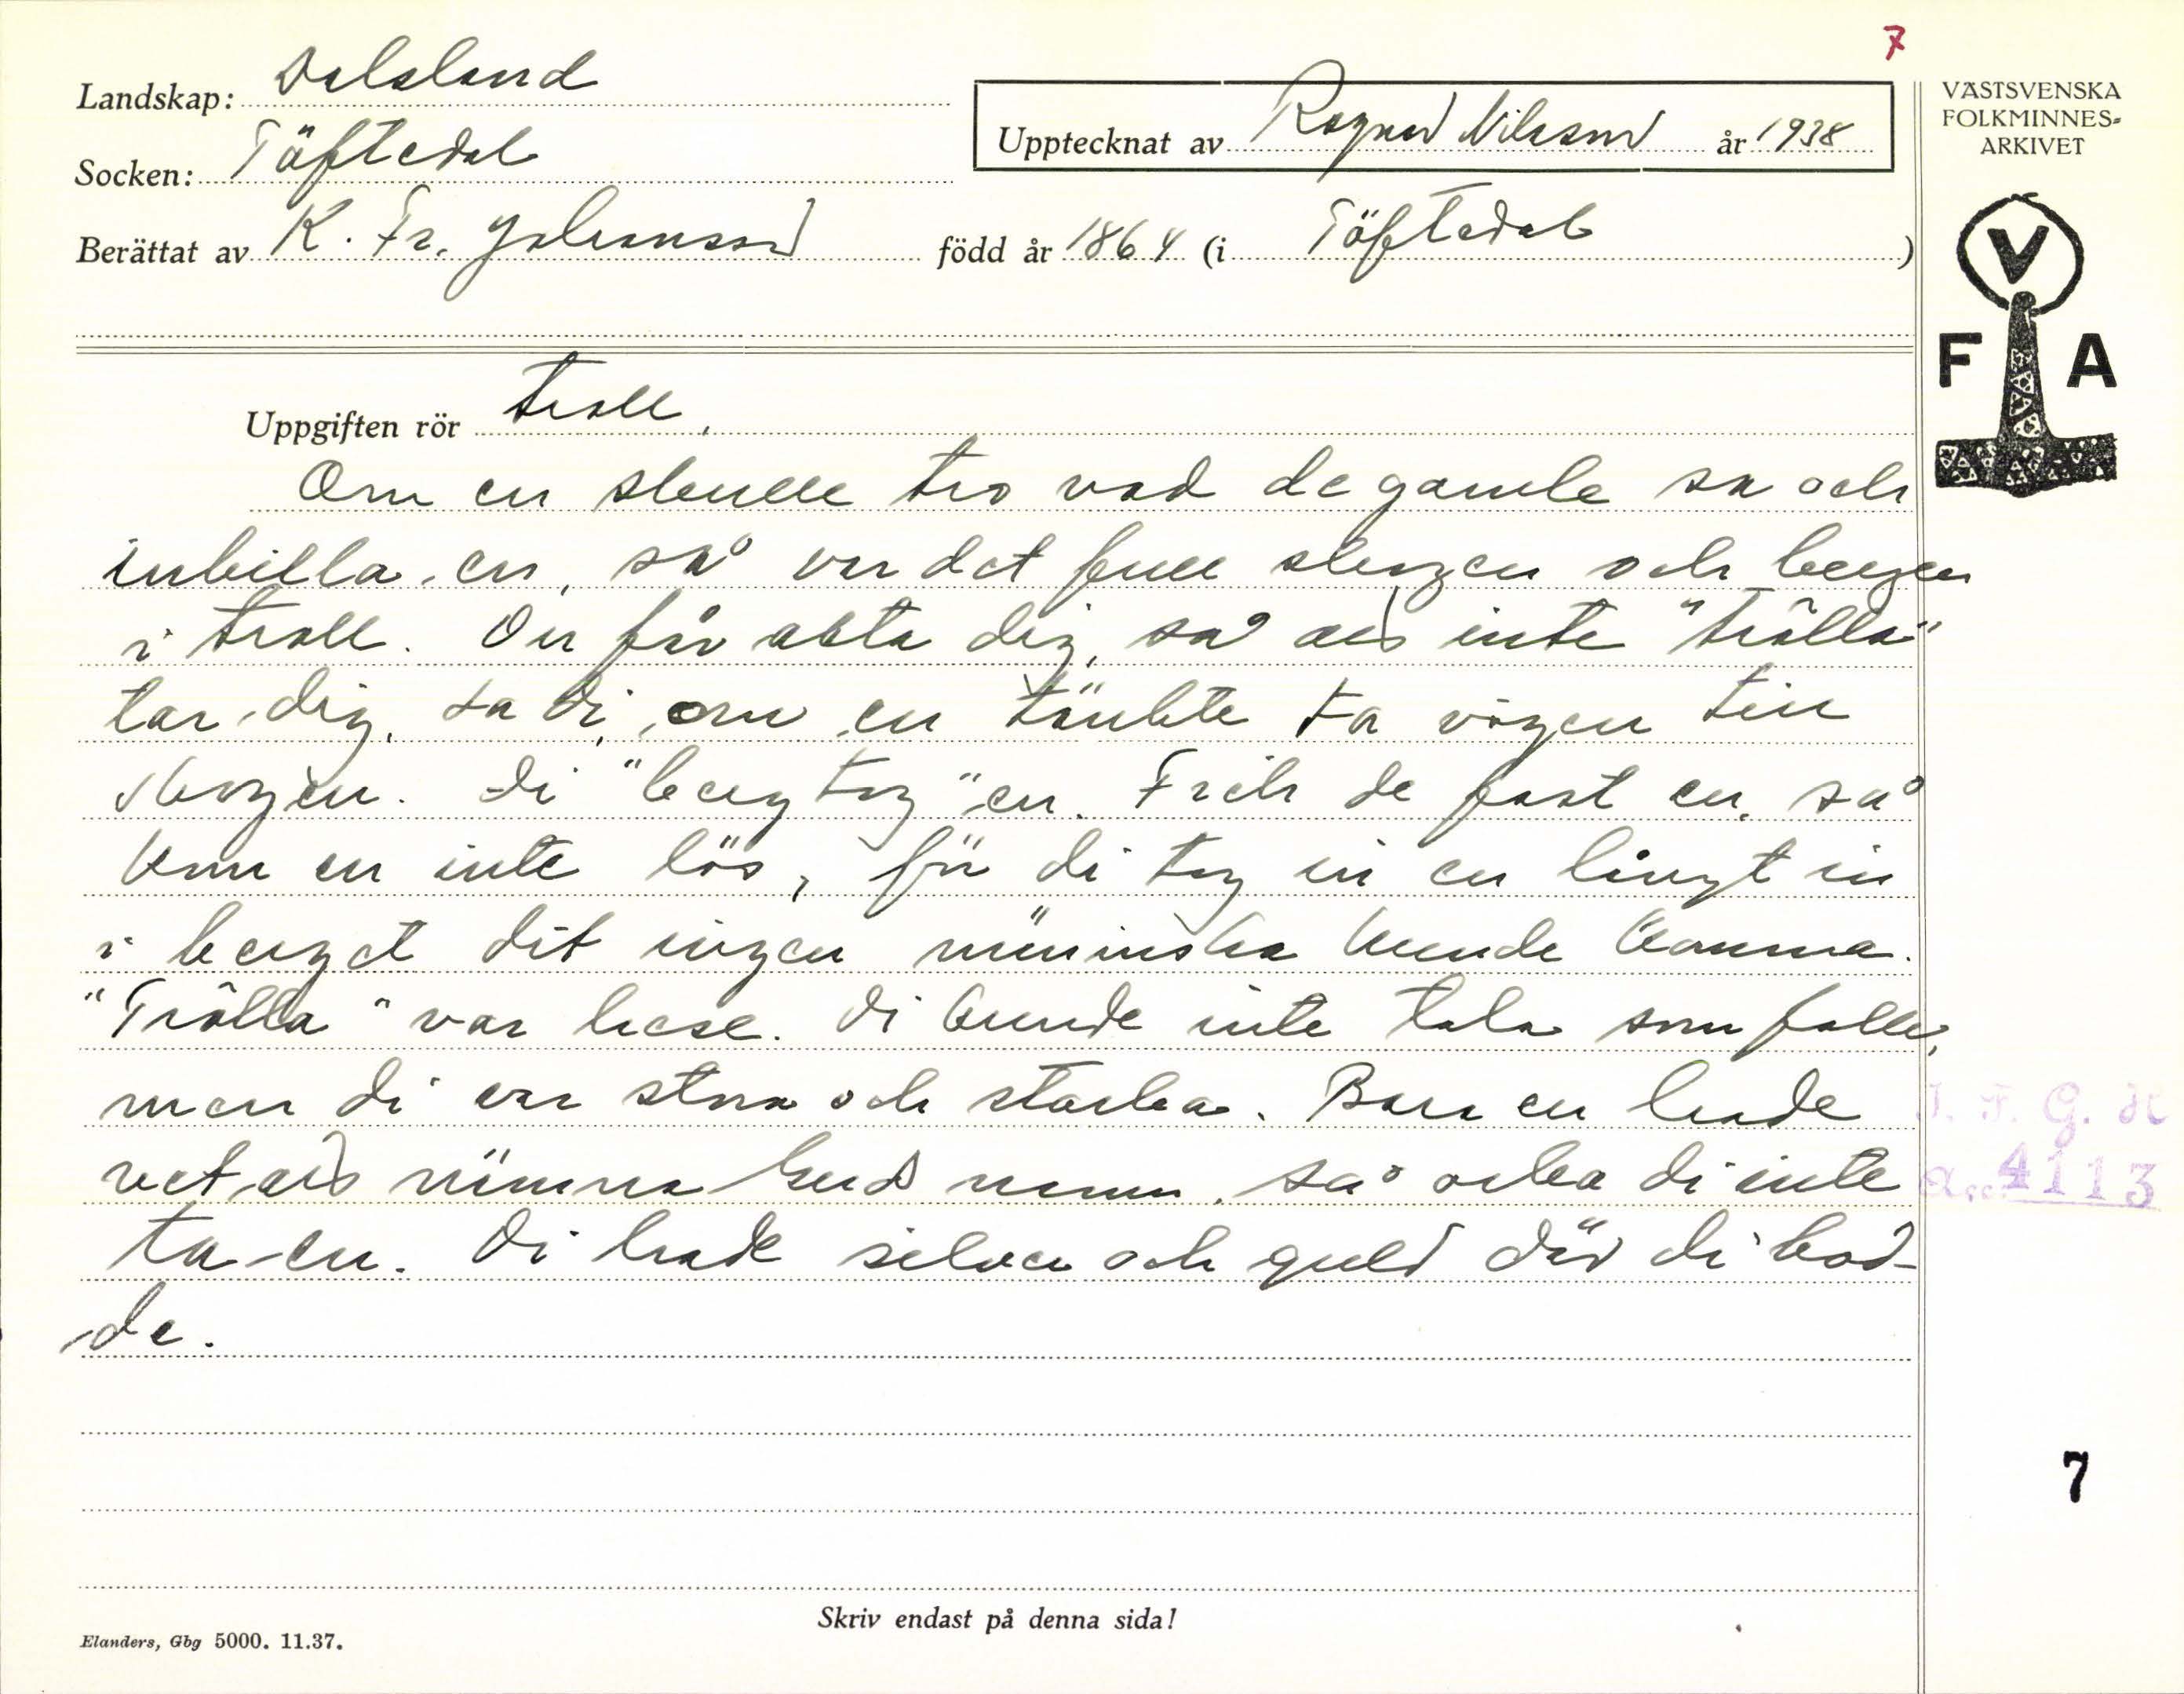 7
Landskap: Dalsland
Upptecknat av Ragnar Nilsson år 1938
VÄSTSVENSKA
FOLKMINNES-
ARKIVET
Socken: Töftedal
Berättat av K. Fr. Johansson född år 1864 (i Töftedal)
V
F A
Uppgiften rör troll.
Om en skulle tro vad de gamle sa och
inbilla en, så var det full skogen och bergen
i troll. Du får akta dig, så als inte "trålla"
tar dig, sa di, om en tänkte ta vägen till
skogen. Di "bergtog" en. Feck de fast en, så
kom en inte lös, för di tog in en långt in
i berget dit ingen människa kunde komma.
"Trålla" var hese. Di kunde inte tala som folk,
men di var stora och starka. Bara en hade
vet als nämna Guds namn, så orka di inte
ta en. Di hade silver och guld där di bod-
de.
I. F. G. H
Acc. 4113
7
Skriv endast på denna sida!
Elanders, Gbg 5000. 11.37.